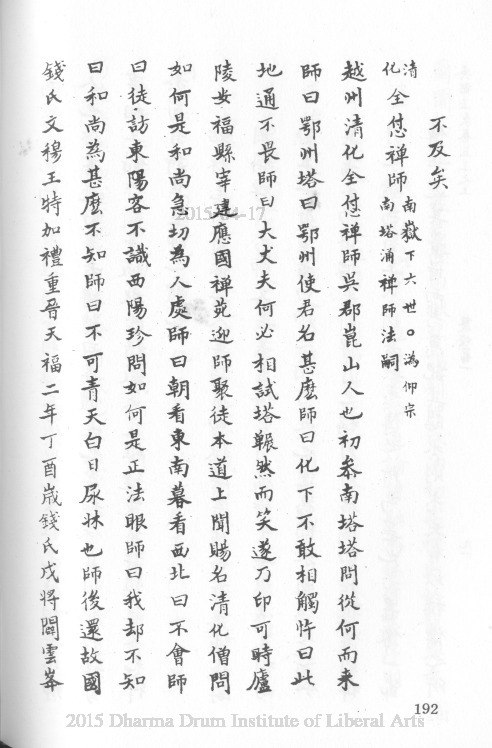 不反矣
清化全怤禪師南嶽下六世。溈仰宗南塔涌禪師法嗣
越州清化全怤禪師吳郡崑山人也初參南塔塔問從何而來
師曰鄂州塔曰鄂州使君名甚麼師曰化下不敢相觸忤曰此
地通不畏師曰大丈夫何必相試塔囅然而笑遂乃印可時廬
陵安福縣宰建應國禪苑迎師聚徒本道上聞賜名清化僧問
如何是和尚急切為人處師曰朝看東南暮看西北曰不會師
曰徒訪東陽客不識西陽珍問如何是正法眼師曰我却不知
曰和尚為甚麼不知師曰不可青天白日尿牀也師後還故國
錢氏文穆王特加禮重晉天福二年丁酉歲錢氏戍將闢雲峯
192
2015 Dharma Drum Institute of Liberal Arts